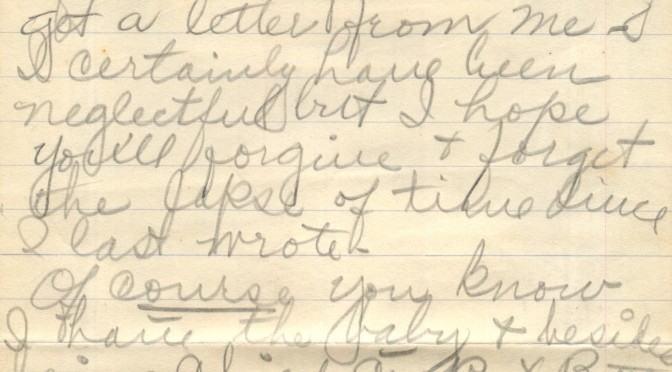 got a letter from me &
I certainly have been
neglectful but I hope
you'll forgive + forget
the lapse of time since
I last wrote-
Of course you know
I have the baby + beside